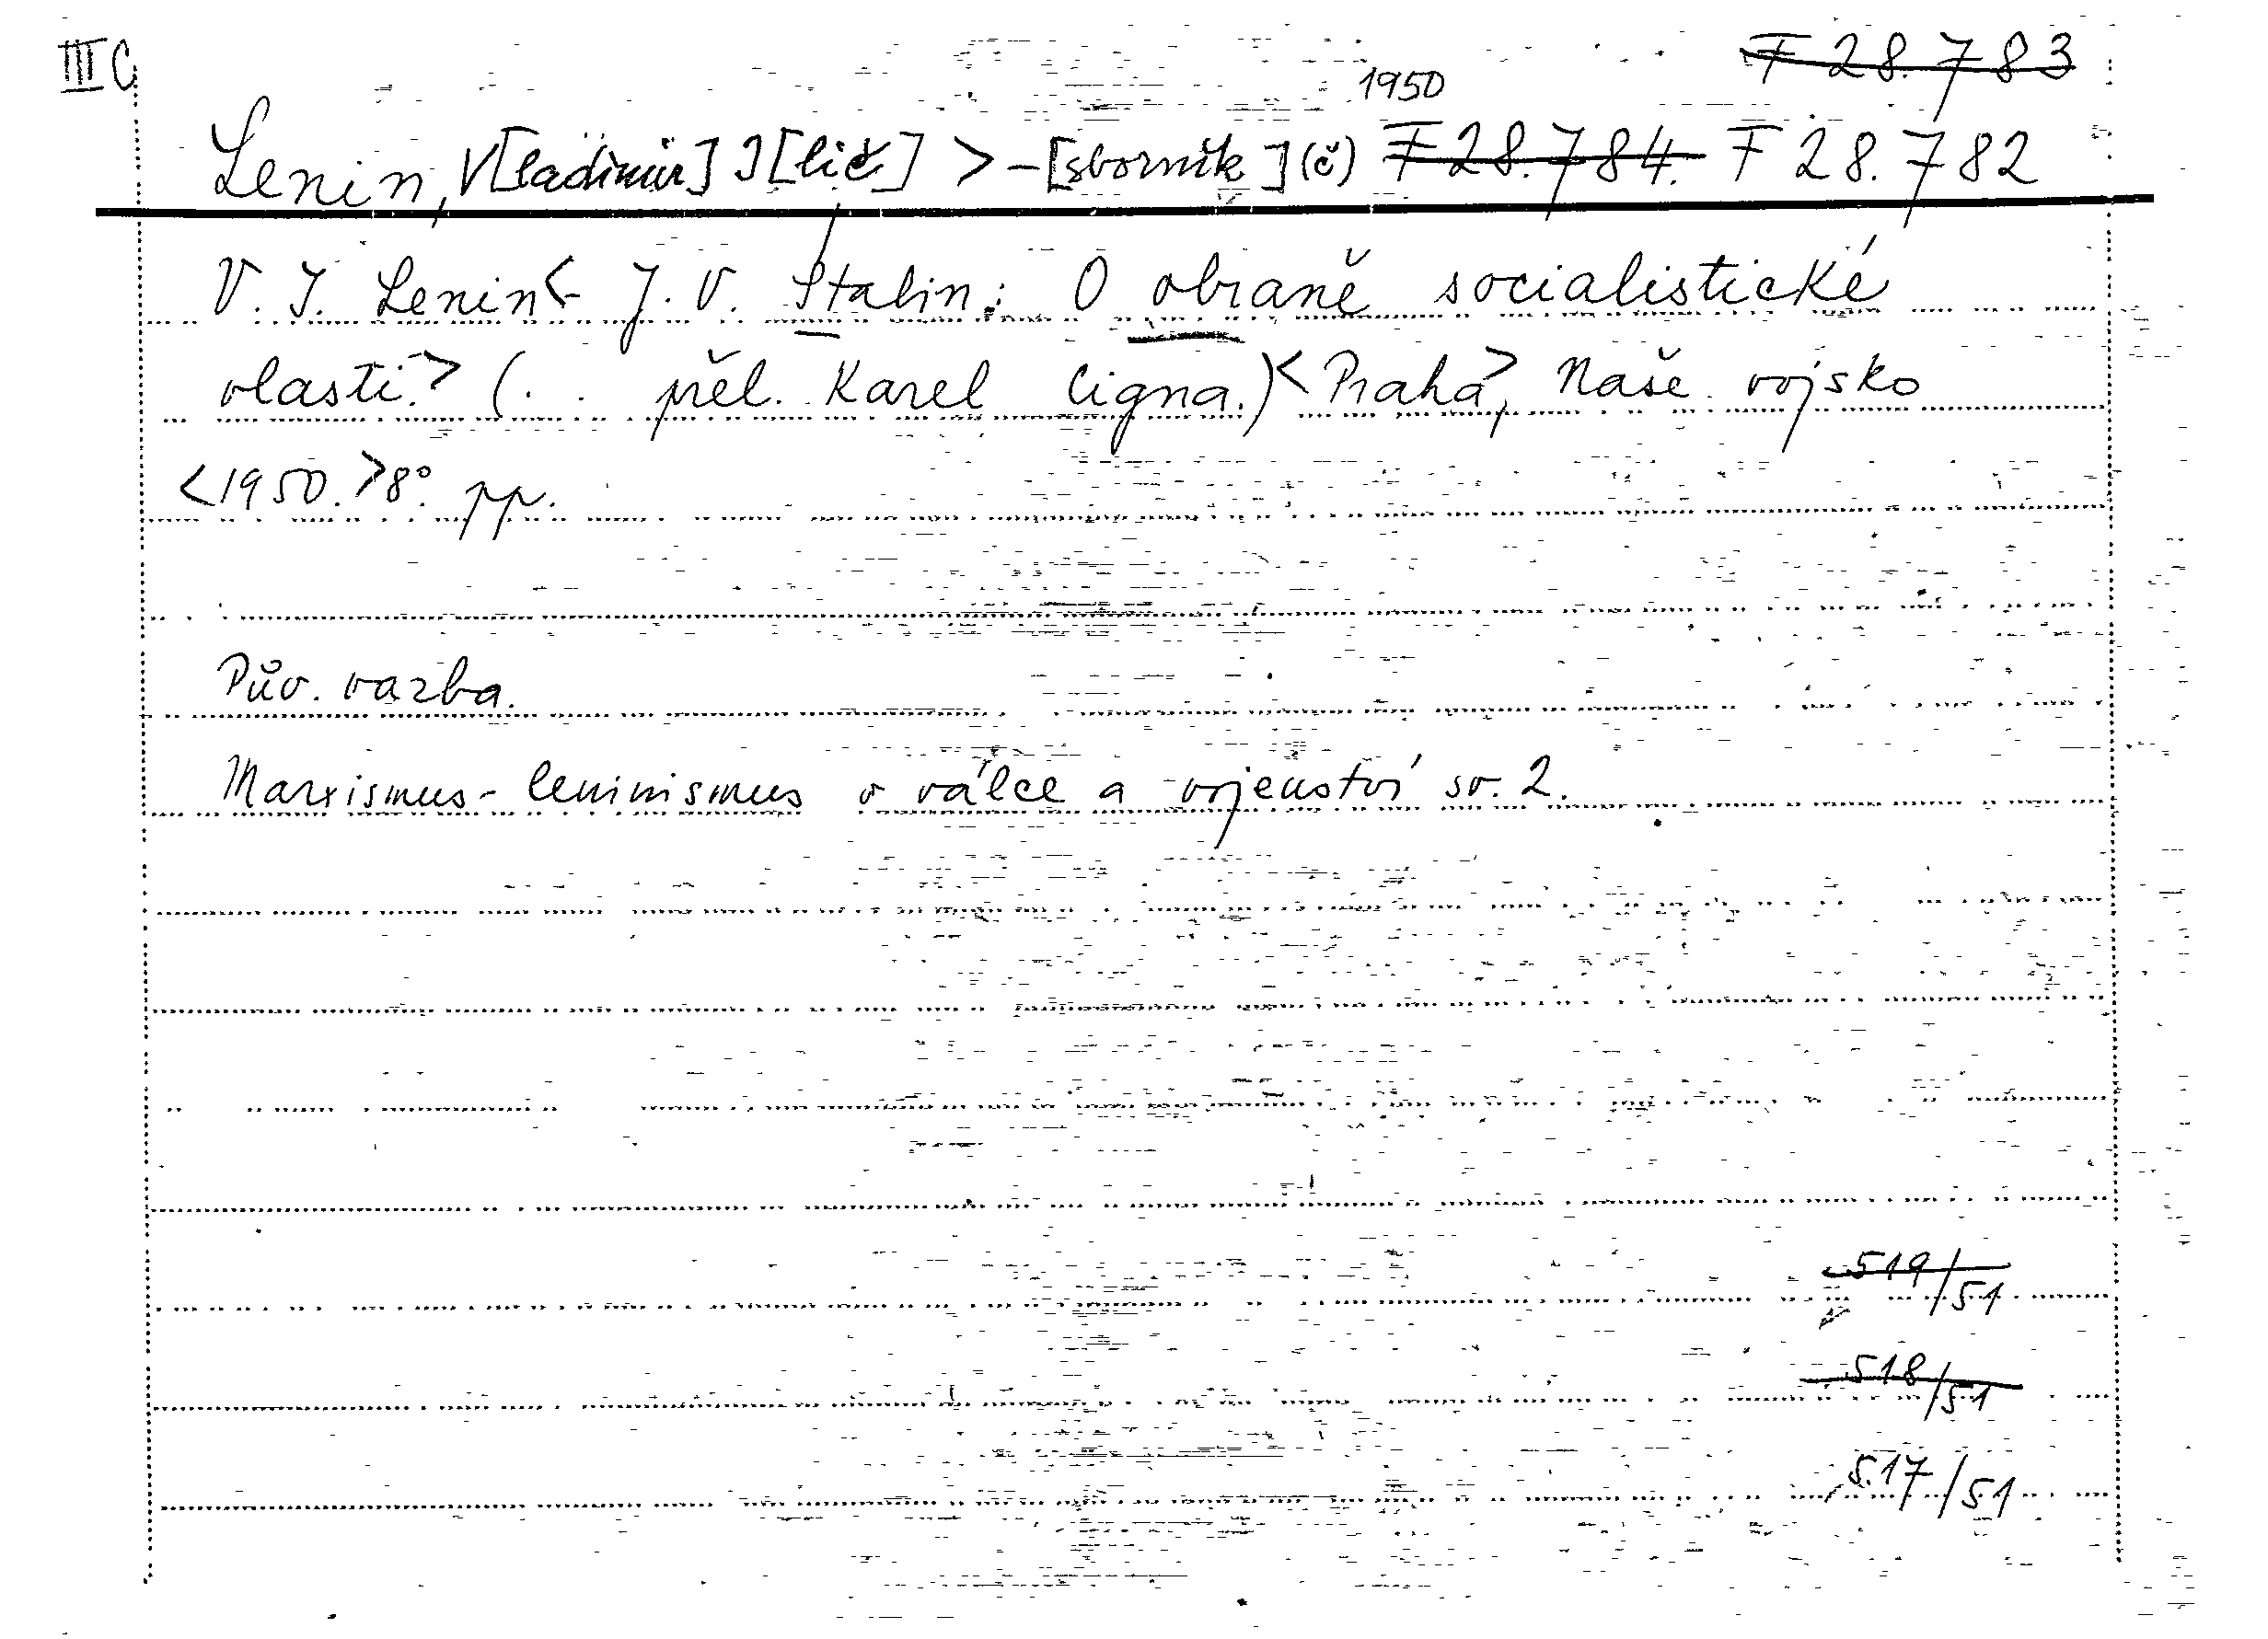 III C
F 28.783
1950
Lenin, V[ladimir] I[lič] > - [sborník] (č) F 28.784. F 28.782
V. I. Lenin < J. V. Stalin: O obraně socialistické
vlasti. > (. . přel. Karel Cigna.) < Praha >, Naše vojsko
< 1950. > 8°. pp.
Pův. vazba.
Marxismus-leninismus o válce a vojenství sv. 2.
519/51
518/51
517/51